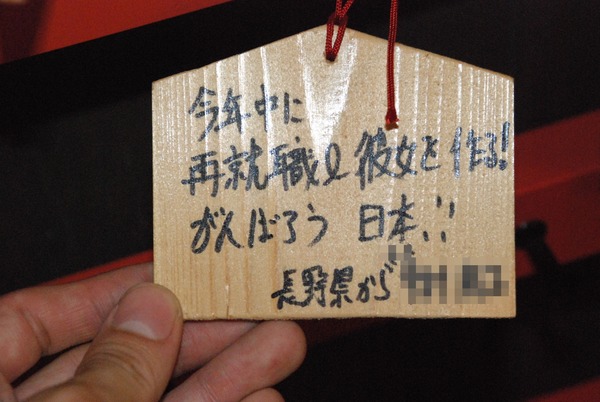 今年中に
再就職&彼女を作る!
がんばろう 日本!!
長野県から